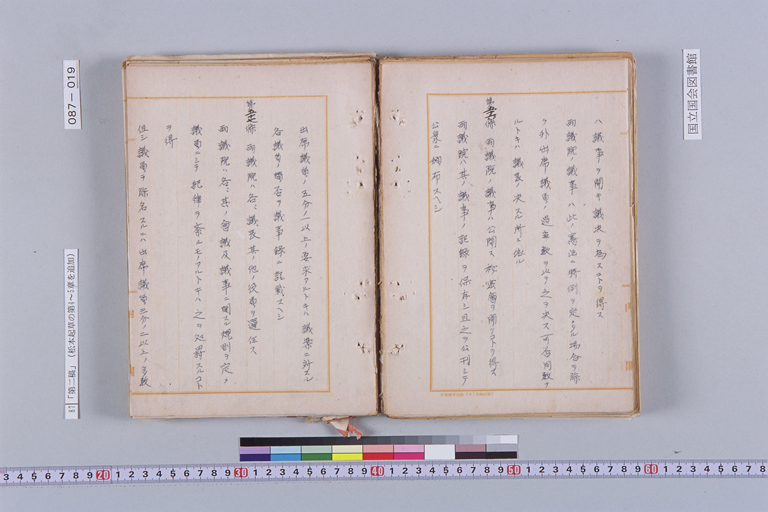 ハ議事ヲ開キ議決ヲ為スコトヲ得ス
両議院ノ議事ハ此ノ憲法ニ特別ノ定アル場合ヲ除
ク外出席議員ノ過半数ヲ以テ之ヲ決ス可否同数ナ
ルトキハ議長ノ決スル所ニ依ル
第 条 両議院ノ議事ハ公開ス秘密会ヲ開クコトヲ得ス
両議院ハ其ノ議事ノ記録ヲ保存シ且之ヲ公刊シテ
公衆ニ頒布スヘシ
出席議員ノ五分ノ一以上ノ要求アルトキハ議案ニ対スル
各議員ノ賛否ヲ議事録ニ記載スヘシ
第 条 両議院ハ各々議長其ノ他ノ役員ヲ選任ス
両議院ハ各々其ノ会議及議事ニ関スル規則ヲ定メ
議員ニシテ規律ヲ紊ルモノアルトキハ之ヲ処罰スルコト
ヲ得
但シ議員ヲ除名スルニハ出席議員三分ノ二以上ノ多数
国立国会図書館
087-019
87「第二稿」(松本起草の第4~5章を追加)